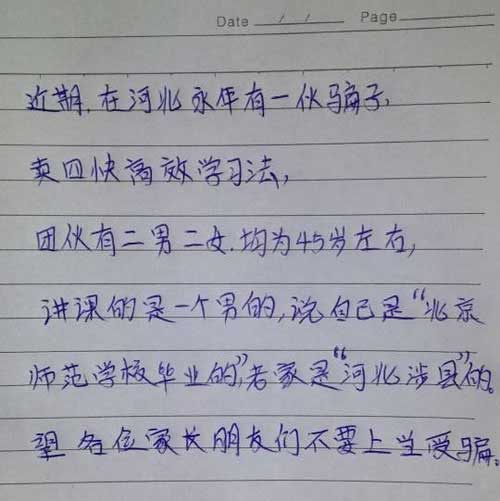 Date / / Page
近期,在河北永年有一伙骗子,
卖四快高效学习法,
团伙有二男二女.均为45岁左右,
讲课的是一个男的,说自己是“北京
师范学校毕业的”,老家是“河北涉县”的。
望各位家长朋友们不要上当受骗。